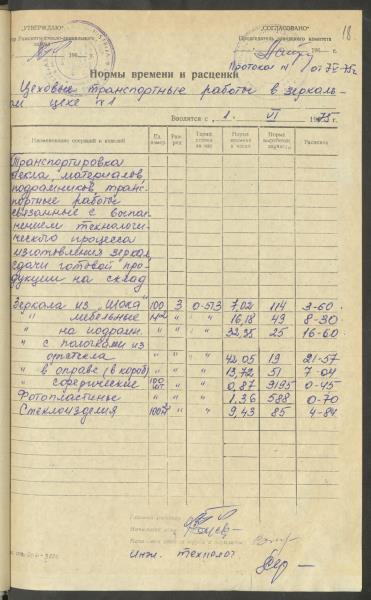 "УТВЕРЖДАЮ"
"СОГЛАСОВАНО"
18.
Председатель заводского комитета
196 г.
196 г.
Протокол № 1 от 7/V-75г.
Нормы времени и расценки
Цеховые транспортные работы в зеркаль-
ом цехе №1
Вводятся с 1. VI 1975г.
Наименование операций и изделий
Ед. измер
Раз-ряд
Норма времени в часах
Норма выработки
Расценка
Транспортировка
стекла, материалов,
подрамников, транс-
портные работы
связанные с выпол-
нением технологи-
ческого процесса
изготовления зеркал,
сдачи готовой про-
дукции на склад
Зеркала из "шока" 100 3 0-513 7,02 114 3-60
" мебельные м2 " " 16,18 49 8-30
" на подрамн. " " " 32,35 25 16-60
" с полочками из
оргстекла " " " 42,05 19 21-57
" в оправе (в короб) " " " 13,72 51 7-04
" сферические 100 шт " " 0,87 9195 0-45
Фотопластинье " " 1,36 588 0-70
Стеклоизделия 100 " " 9,43 85 4-84
Инж. технолог